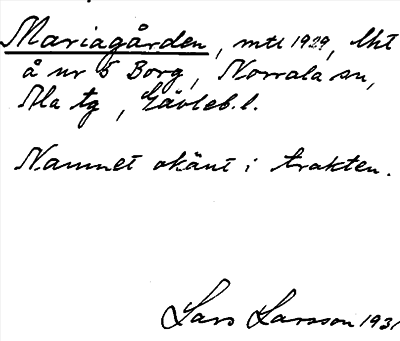 Mariagården, mtl 1929, lht
å nr 5 Borg, Norrala sn,
Ala tg, Gävleb. l.
Namnet okänt i trakten.
Lars Larsson 1931